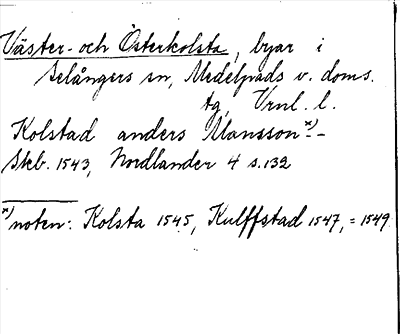 Väster- och Österkolsta, byar i
Selångers sn, Medelpads v. doms.
tg, Vrnl. l.
Kolstad anders Monsson *) -
Skb. 1543, Nordlander 4 s. 132
*) noten: Kolsta 1545, Kulffstad 1547, = 1549